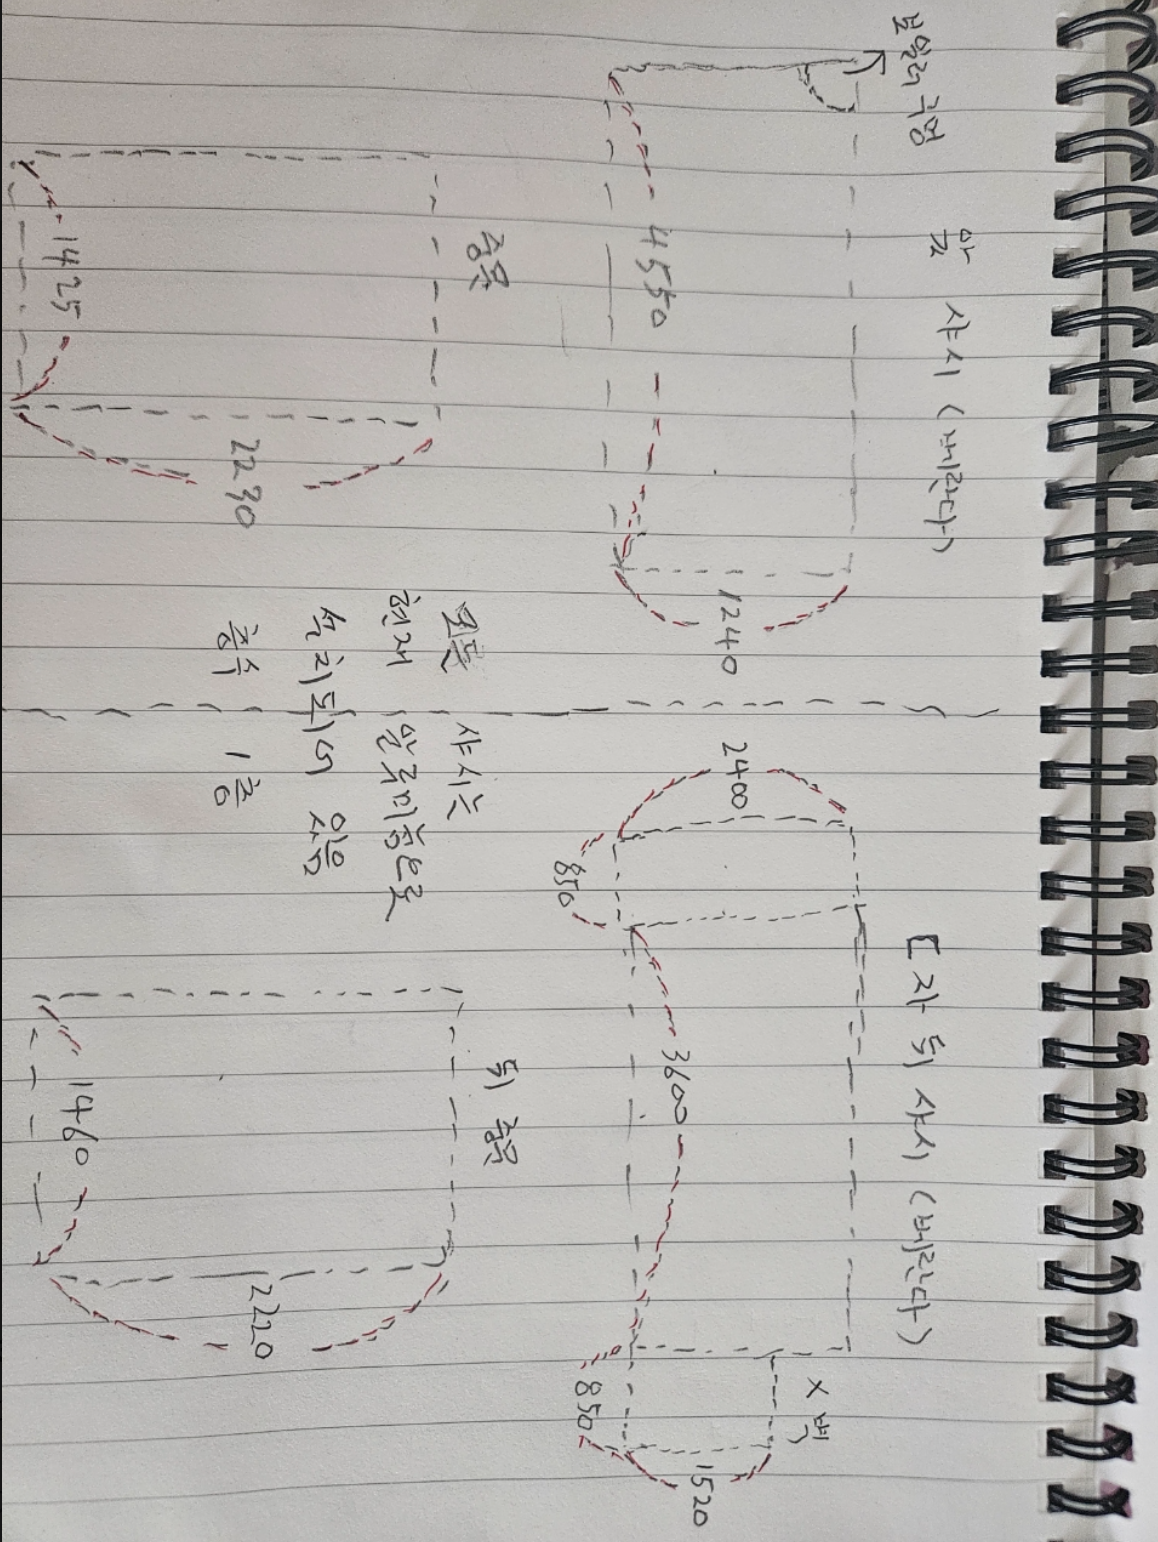 보일러 구멍
앞 샤시 (베란다)
4550
1240
중문
1425
2230
모든 샤시는
현재 알루미늄으로
설치되어 있음
홑수 1층
[자 뒤 샤시 (베란다)
2400
850
3600
X 벽
850
1520
뒤 중문
1460
2220